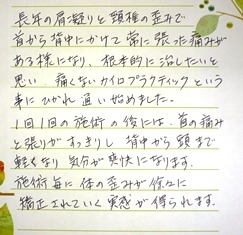 長年の肩凝りと頚椎の歪みで
首から背中にかけて常に張った痛みが
ある様になり、根本的に治したいと
思い、痛くないカイロプラクティックという
事にひかれ通い始めました。
1回1回の施術の後には、首の痛み
と張りがすっきりし背中から頭まで
軽くなり気分が爽快になります。
施術毎に体の歪みが徐々に
矯正されていく実感が得られます。